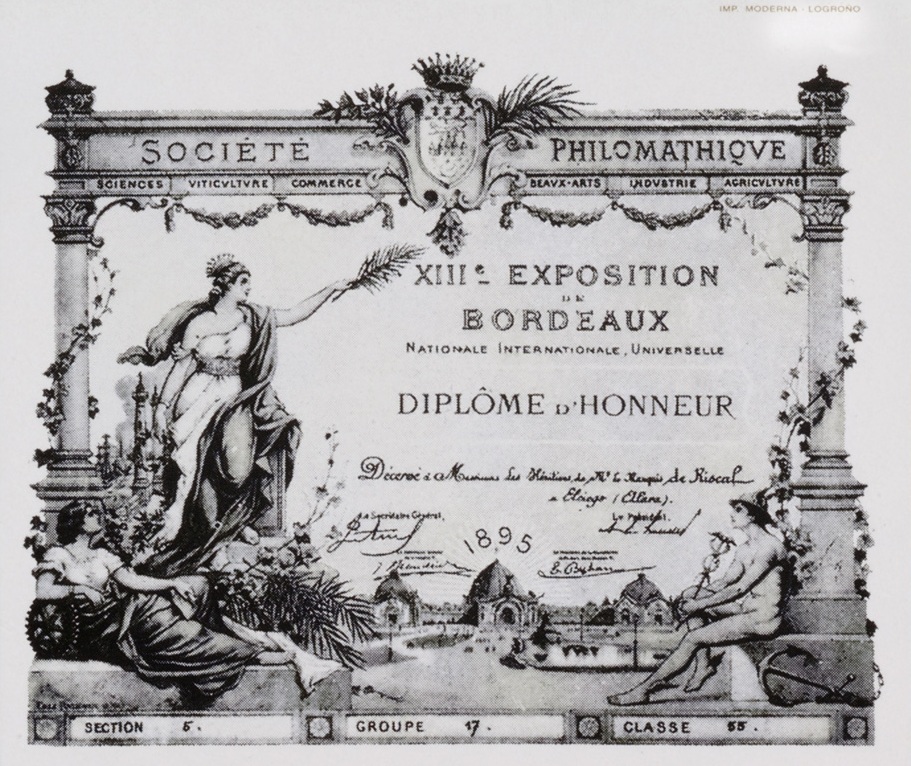 IMP. MODERNA - LOGROÑO
SOCIÉTÉ PHILOMATHIQVE
SCIENCES VITICVLTVRE COMMERCE BEAUX-ARTS INDVSTRIE AGRICVLTVRE
XIIIe EXPOSITION
DE
BORDEAUX
NATIONALE INTERNATIONALE, UNIVERSELLE
DIPLÔME D'HONNEUR
Décerné à Messieurs les Héritiers de Mr le Marquis de Riscal
a Elciego (Alava).
Le Secrétaire Général, Le Président,
1895
SECTION 5. GROUPE 17. CLASSE 55.